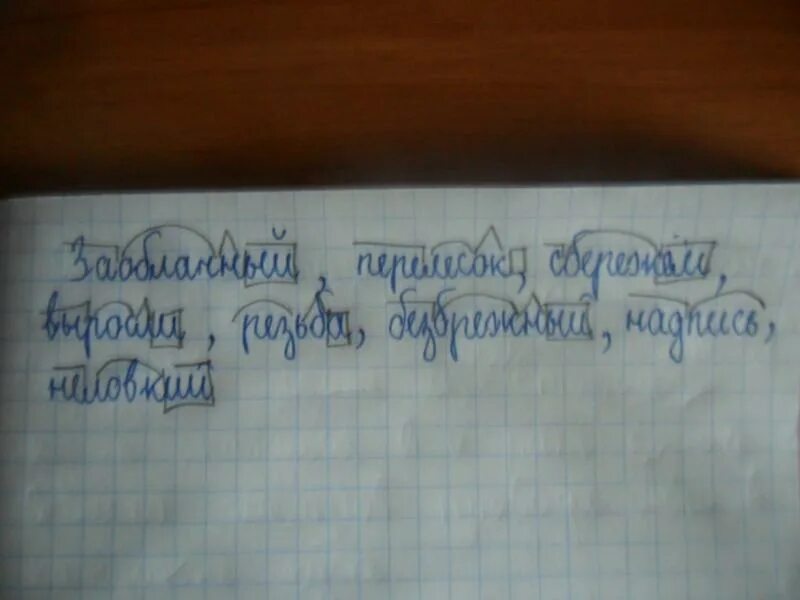 Заобланный, перелесок, сбережём,
выросли, резьба, безбрежный, надпись,
неловкий